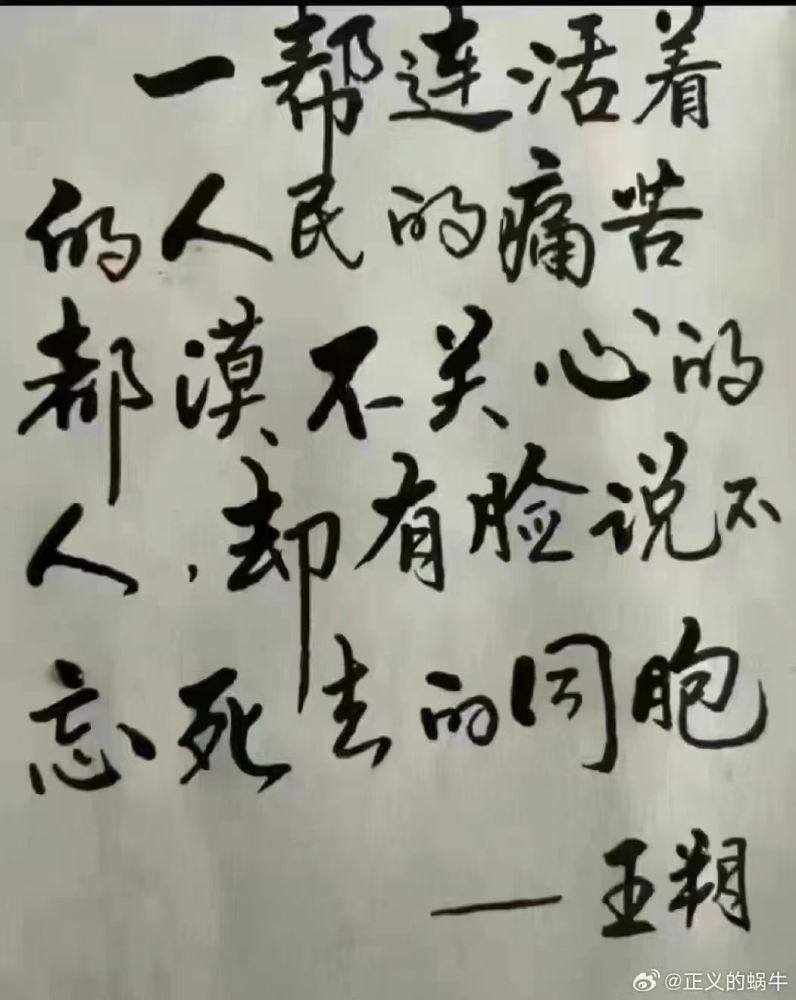 一帮连活着
的人民的痛苦
都漠不关心的
人，却有脸说不
忘死去的同胞
——王朔
@正义的蜗牛